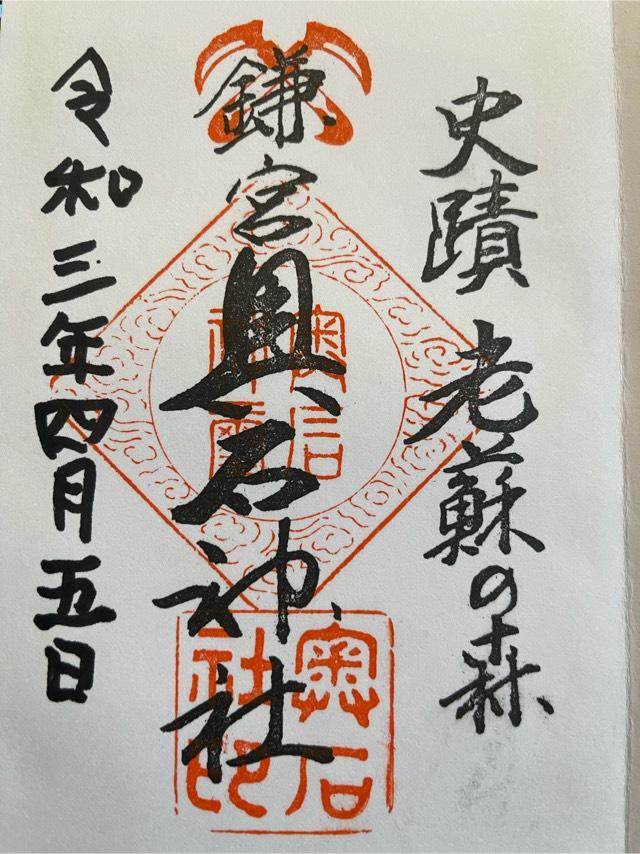 史蹟 老蘇の森
鎌宮 奥石神社
令和三年四月五日
奥石
神璽
奥石
社印